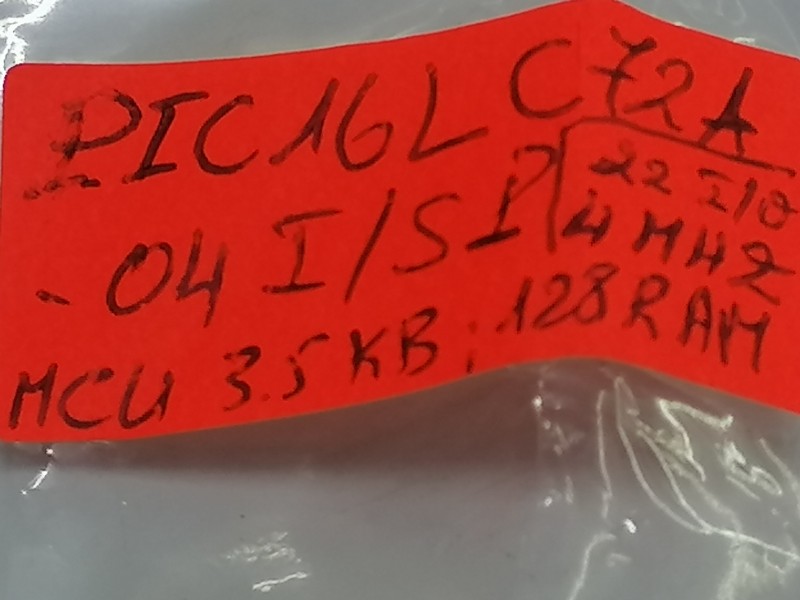 PIC16LC72A
-04 I/SP
22 I/O
4MHZ
MCU 3.5KB; 128RAM